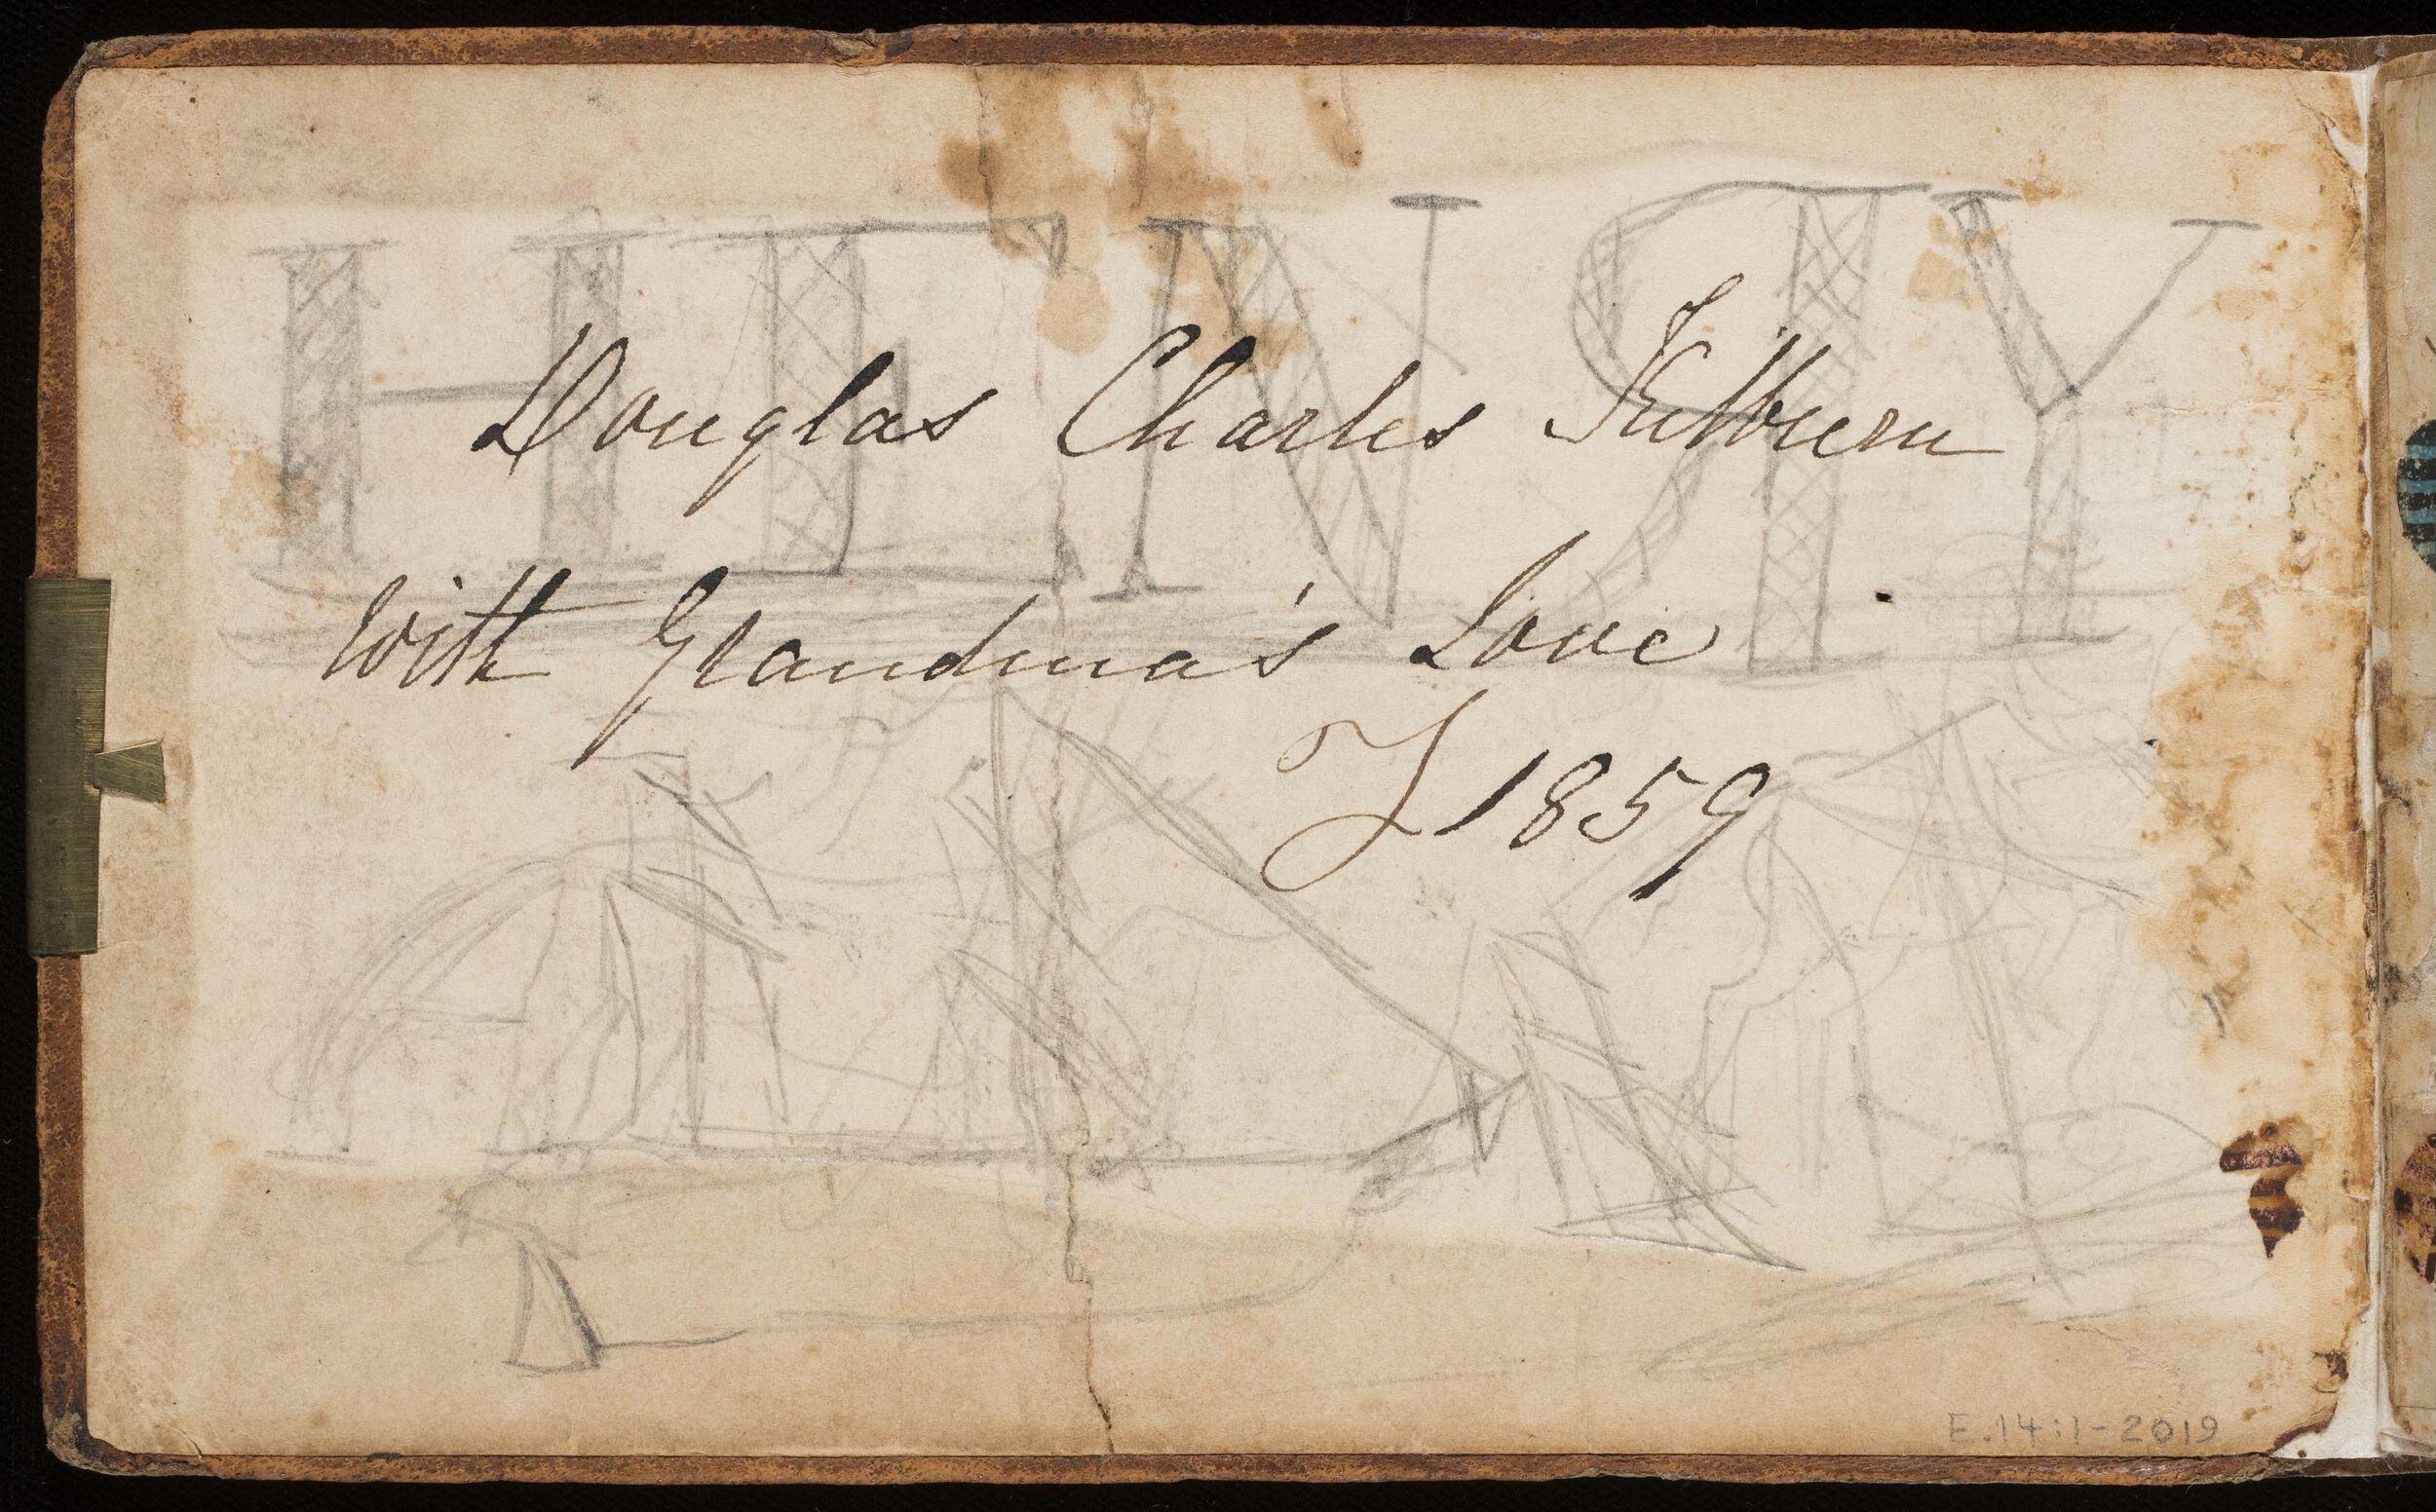 HENRY
Douglas Charles Kilburn
With Grandma's Love
1859
E.14:1-2019